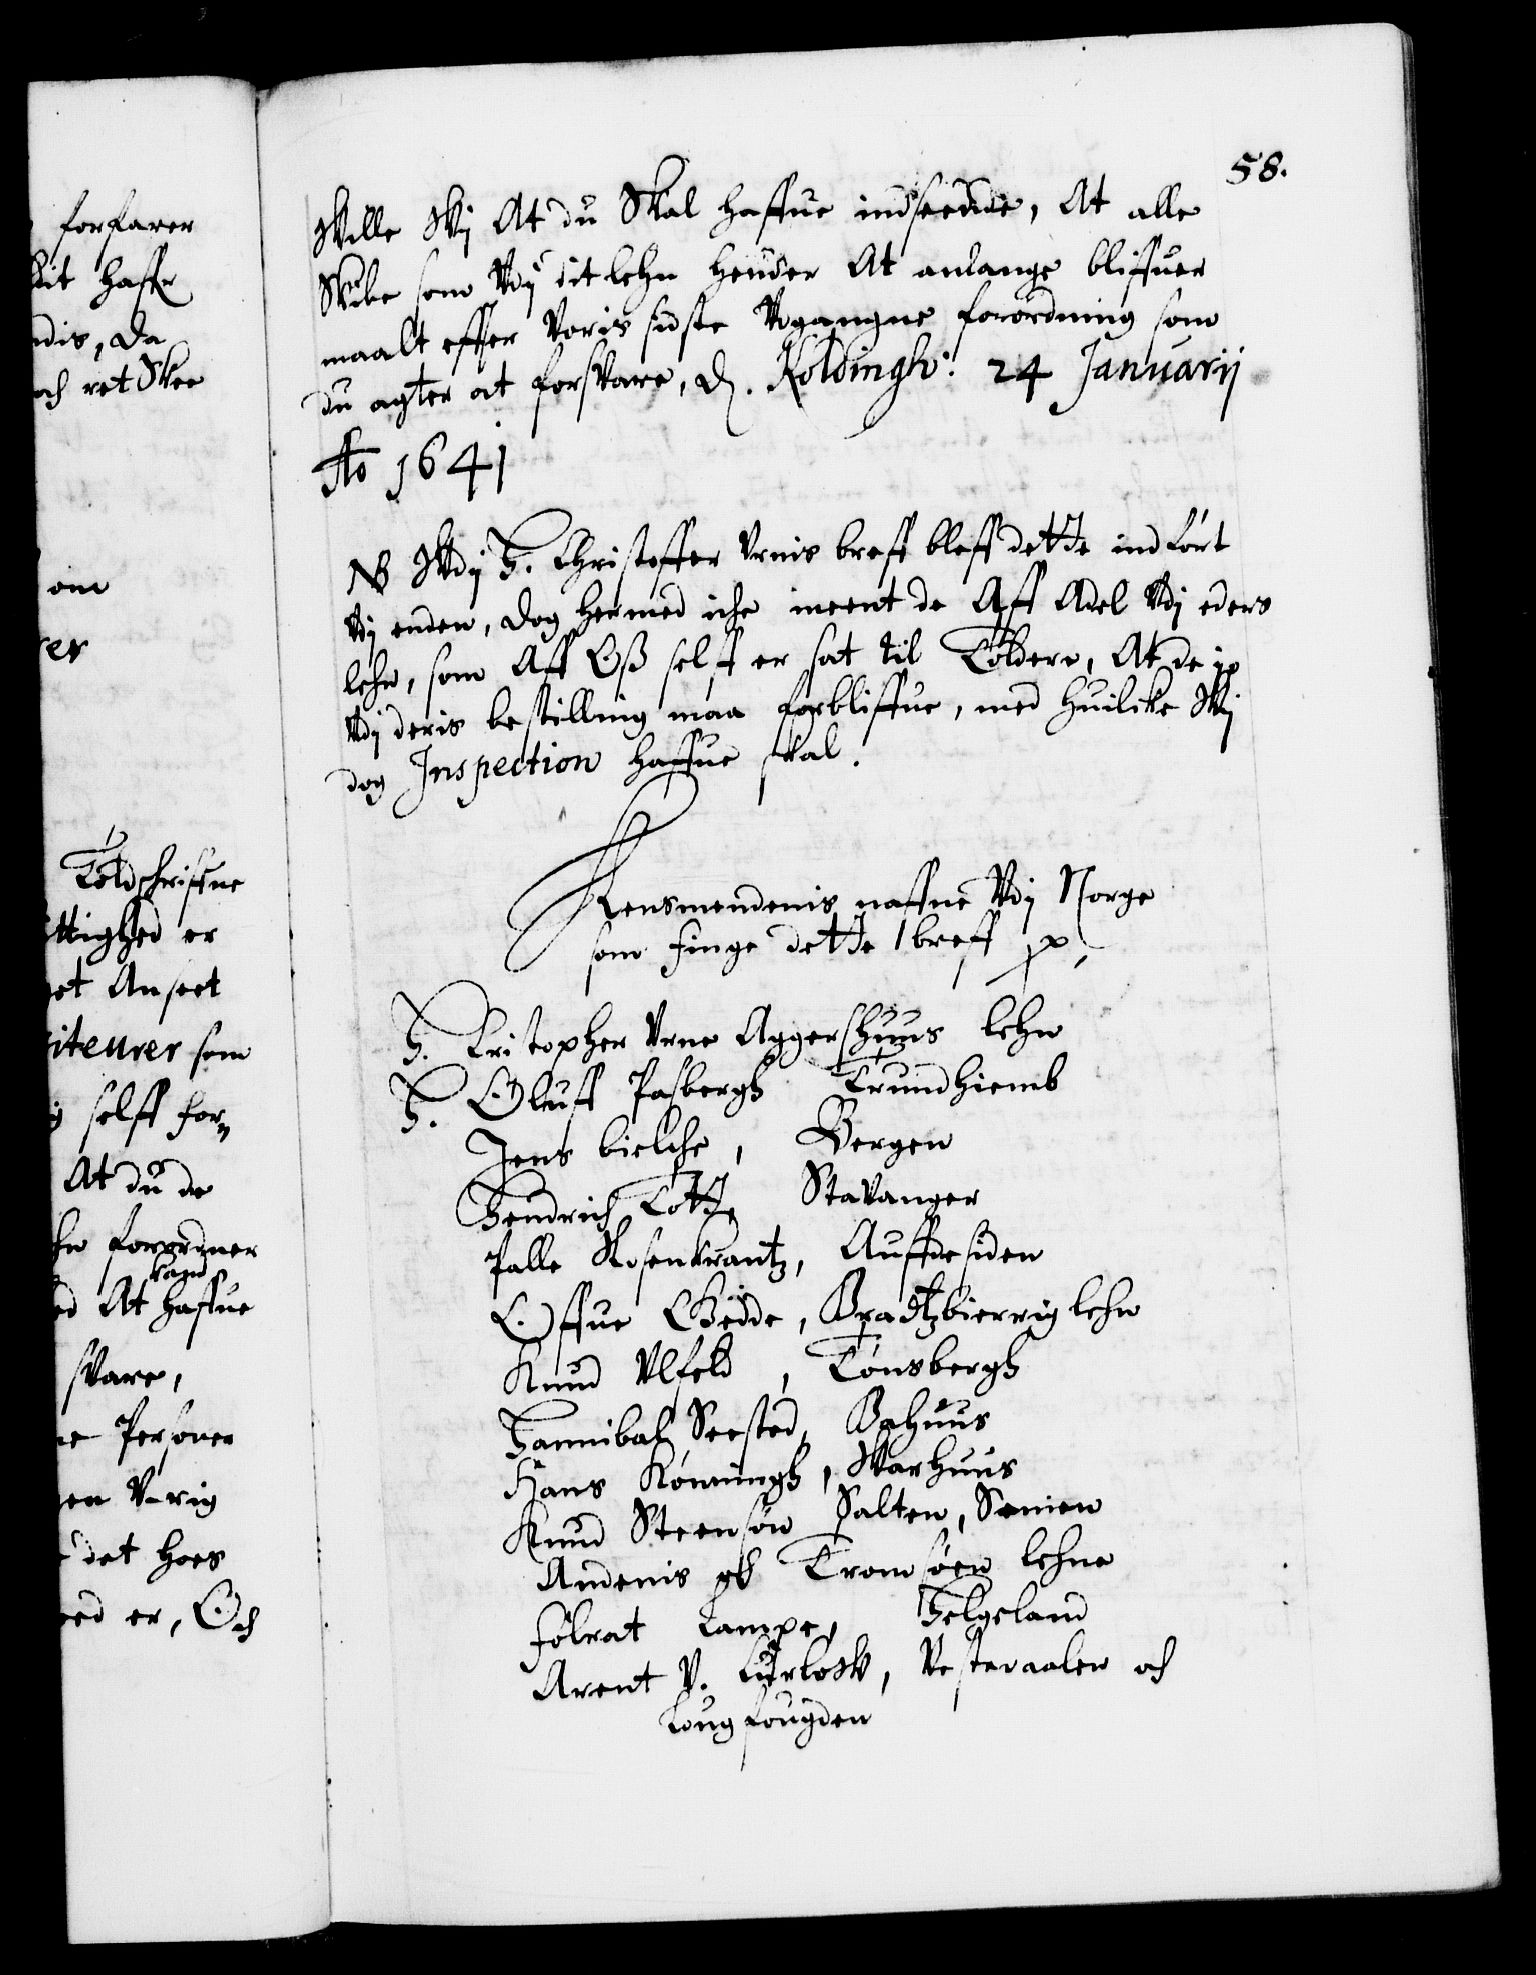 58.
Wille Wij At du Skal haffue indseende, At alle
Skibe som Vdj dit lehn hender At anlange bliffuer
maalt effter Voris sidste Vdgangne forordning som
du agter at forsvare, D. Koldingh: 24 Januarij
Ao 1641
NB Wdj H. Christoffer Vrnis breff bleff dette indført
Vdj enden, dog hermed iche meent de Aff Adel Vdj eders
lehn, som Aff Oß selff er sat til Toldere, At de jo
Vdj deris bestilling maa forbliffue, med huilcke Wij
dog Inspection haffue skal.
Lensmendenis naffne Vdj Norge
som finge dette breff
H. Cristopher Vrne Aggershuus lehn
H. Oluff Pasbergh Trundhiemb
Jens bielche, Bergen
Hendrich Totte Stavanger
Palle Rosenkrantz, Auffdesiden
Offue Giedde, Bradtzbierrig lehn
Knud Vlfeld, Tønsbergh
Hannibal Seested, Bahuus
Hans Kønningh, Warhuus
Knud Steensøn Salten, Senien
Andenis och Tromsøen lehne
folrat Lampe, Helgeland
Arent V. Kurlosk, Vesteraalen och
Lougfougden
forfarer
haffr
ndis, da
och ret Skee
om
Toldschriffue
ttighed er
et Anseet
siteurer som
selff for
At du de
forordner
kand
At haffue
svare,
Personer
Vorig
det hoes
er, Och